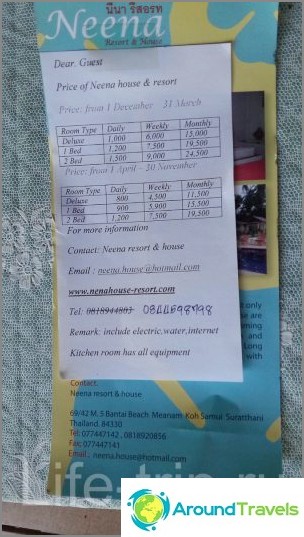 นีนา รีสอร์ท
Neena
Resort & House
Dear. Guest
Price of Neena house & resort
Price: from 1 December 31 March
Room Type Daily Weekly Monthly
Deluxe 1,000 6,000 15,000
1 Bed 1,200 7,500 19,500
2 Bed 1,500 9,000 24,500
Price: from 1 April - 30 November
Room Type Daily Weekly Monthly
Deluxe 800 4,500 11,500
1 Bed 900 5,900 15,500
2 Bed 1,200 7,500 19,500
For more information
Contact: Neena resort & house
Email : neena.house@hotmail.com
www.nenahouse-resort.com
Tel: 0818944803
Remark: include electric,water,internet
Kitchen room has all equipment
only
are
and
Long
with
Contact.
Neena resort & house
69/42 M. 5 Bantai Beach Meanam Koh Samui Suratthani
Thailand. 84330
Tel; 077447142 , 0818920856
Fax; 077447141
Email ; neena.house@hotmail.com
life-trip.ru
AroundTravels